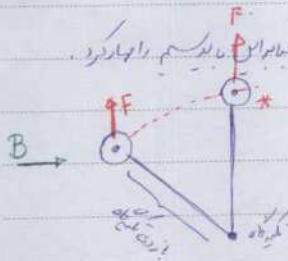 F
بنابراین باید سیستم را مهار کرد .
F
*
B
تکیه گاه